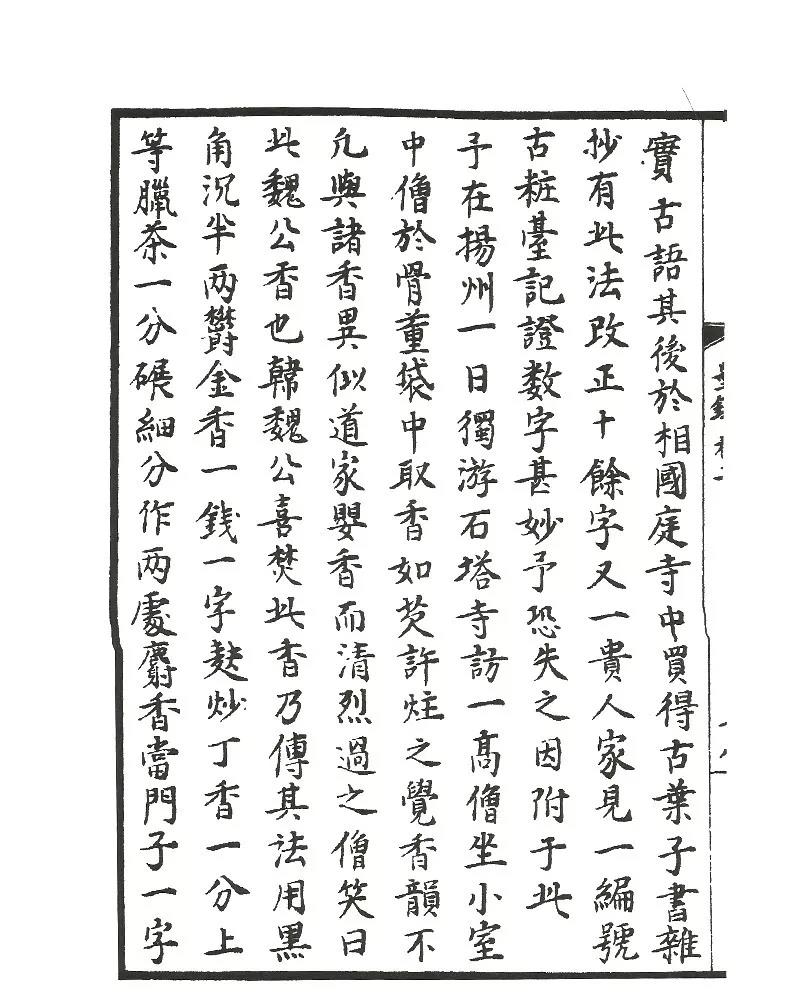 實古語其後於相國庭寺中買得古葉子書雜
抄有此法改正十餘字又一貴人家見一編號
古粧臺記證数字甚妙予恐失之因附于此
予在揚州一日獨游石塔寺訪一高僧坐小室
中僧於骨董袋中取香如芡許炷之覺香韻不
凡與諸香異似道家嬰香而清烈過之僧笑曰
此魏公香也韓魏公喜焚此香乃傳其法用黒
角沉半两欝金香一錢一字麸炒丁香一分上
等臘茶一分碾細分作两處麝香當門子一字